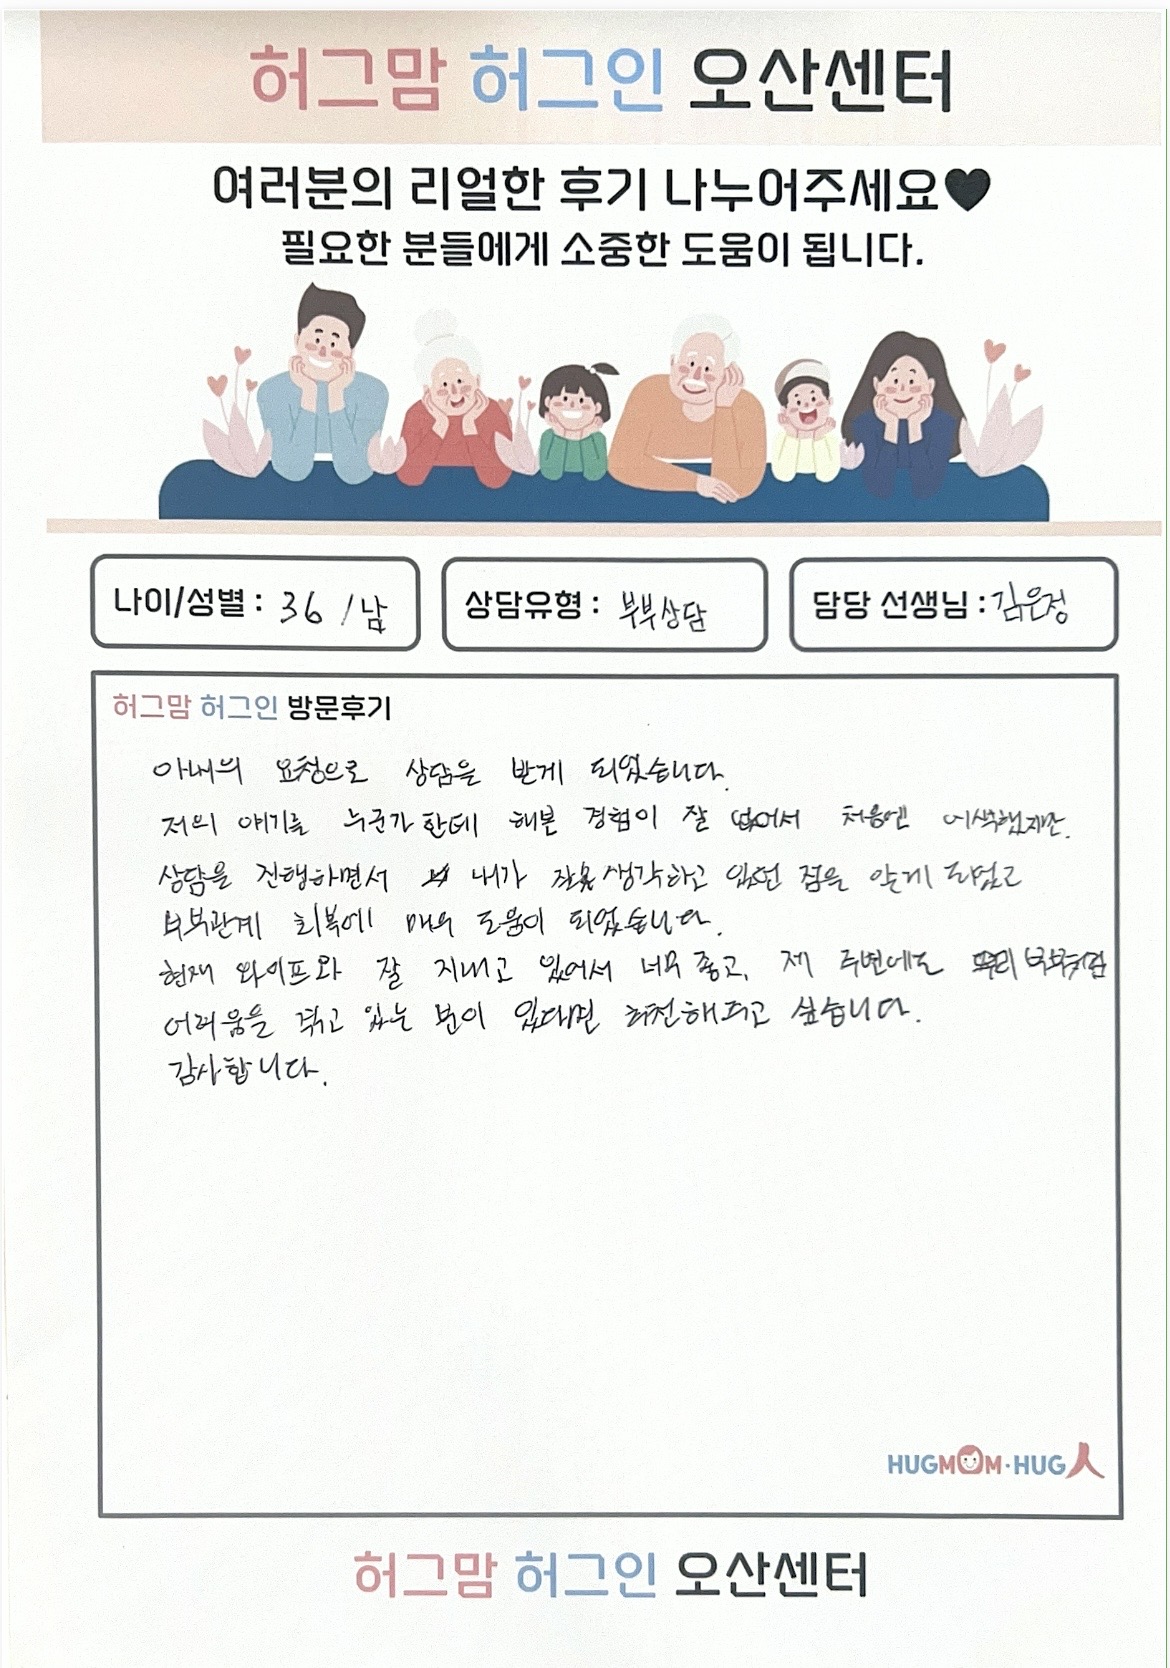 허그맘 허그인 오산센터
여러분의 리얼한 후기 나누어주세요♥
필요한 분들에게 소중한 도움이 됩니다.
나이/성별 : 36 / 남
상담유형 : 부부상담
담당 선생님 : 김은정
허그맘 허그인 방문후기
아내의 요청으로 상담을 받게 되었습니다.
저의 얘기를 누군가한테 해본 경험이 잘 없어서 처음엔 어색했지만.
상담을 진행하면서 내가 잘못 생각하고 있었던 점을 알게 되었고
부부관계 회복에 매우 도움이 되었습니다.
현재 와이프와 잘 지내고 있어서 너무 좋고, 제 주변에도 우리 부부처럼
어려움을 겪고 있는 분이 있다면 추천해주고 싶습니다.
감사합니다.
HUGMOM·HUG人
허그맘 허그인 오산센터